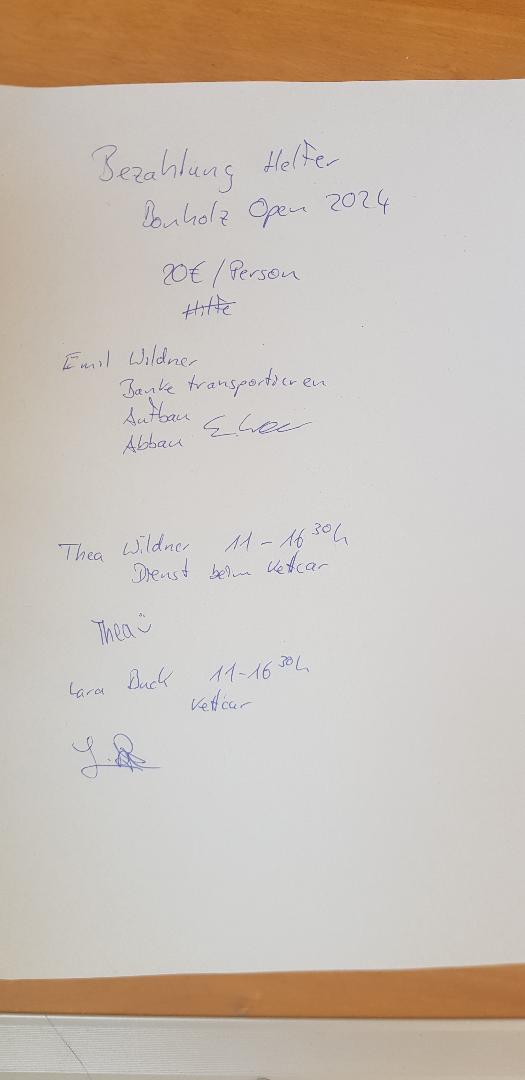 Bezahlung Helfer
Bonholz Open 2024
20€/Person
Hilfe
Emil Wildner
Bänke transportieren
Aufbau
Abbau
Thea Wildner 11-16 30h
Dienst beim Kettcar
Thea
Lara Buck 11-16 30h
Kettcar